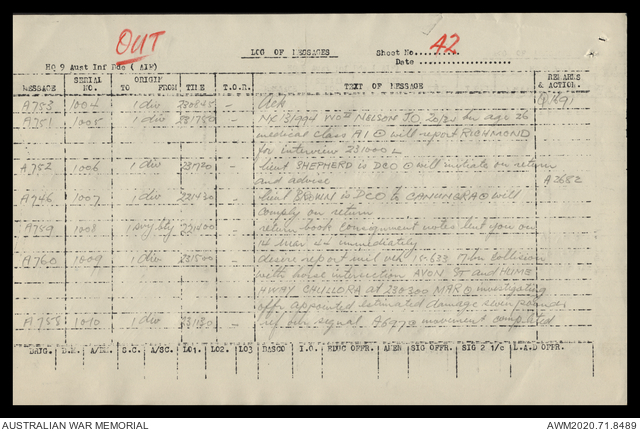 OUT
LOG OF MESSAGES
Sheet No. 42
Date
HQ 9 Aust Inf Bde (AIF)
MESSAGE SERIAL NO. ORIGIN TO FROM TIME T.O.R. TEXT OF MESSAGE REMARKS & ACTION.
A753 1004 1 div 230845 - Ack
A751 1005 1 div 221750 - NELSON J.O. age 26
medical class A1 @ will report RICHMOND
for interview 231000 L
A752 1006 1 div - Lieut SHEPHERD is DCO @ will initiate on return
and advise A2652
A746 1007 1 div 221430 - Lieut BROWN is DCO to CANUNGRA @ will
comply on return
A759 1008 221400 return book consignment notes lent you on
14 immediately
A760 1009 1 div 231500 - desire report mil veh 17 bn collision
with horse intersection AVON ST and HUME
HWAY CHULLORA at 230300 MAR @ investigating
offr appointed estimated damage seven pounds
A755 1010 1 div 231130 - ref our signal movement completed
BRIG. B.M. S.C. A/SC. LO1. LO2. LO3 BASCO I.O. EDUC OFFR. AMEN SIG OFFR. SIG 2 i/c L.A.D OFFR.
AUSTRALIAN WAR MEMORIAL
AWM2020.71.8489